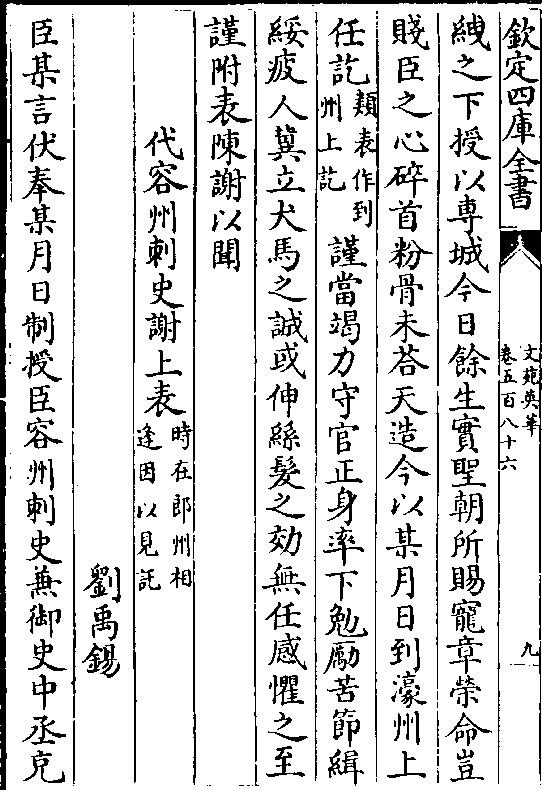 欽定四庫全書
文苑英華
卷五百八十六
九
絏之下授以専城今日餘生實聖朝所賜寵章榮命豈
賤臣之心碎首粉骨未荅天造今以某月日到濠州上
任訖類表作到州上訖謹當竭力守官正身率下勉勵苦節緝
綏疲人冀立犬馬之誠或伸絲髮之効無任感懼之至
謹附表陳謝以聞
代容州刺史謝上表時在郎州相逢因以見託
劉禹錫
臣某言伏奉某月日制授臣容州刺史兼御史中丞克